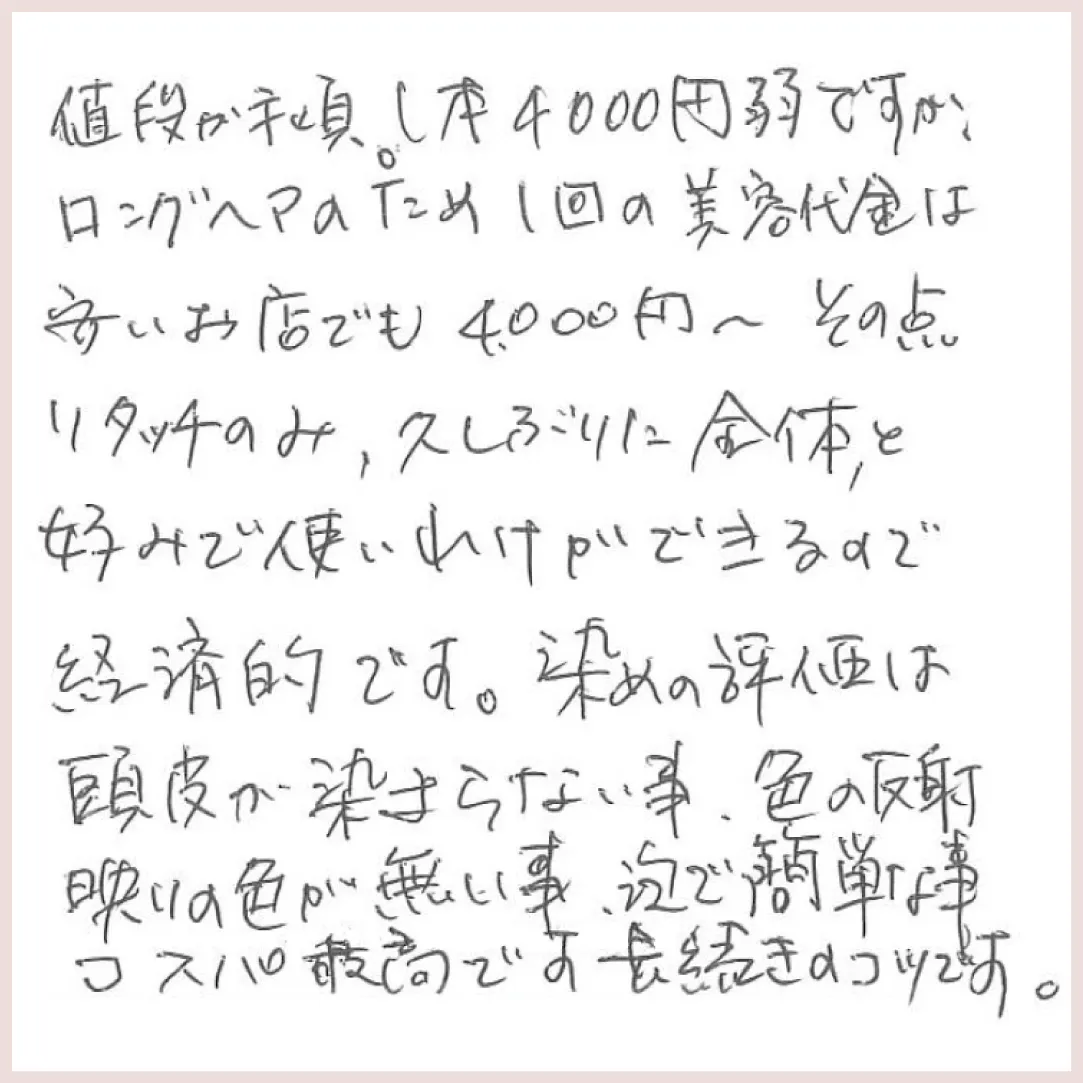 値段が手頃。1本4000円弱ですが、
ロングヘアのため1回の美容代金は
安いお店でも4000円〜 その点
リタッチのみ,久しぶりに全体,と
好みで使いわけができるので
経済的です。染めの評価は
頭皮が染まらない事、色の反射
映りの色が無い事、泡で簡単な事
コスパ最高です 長続きのコツです。